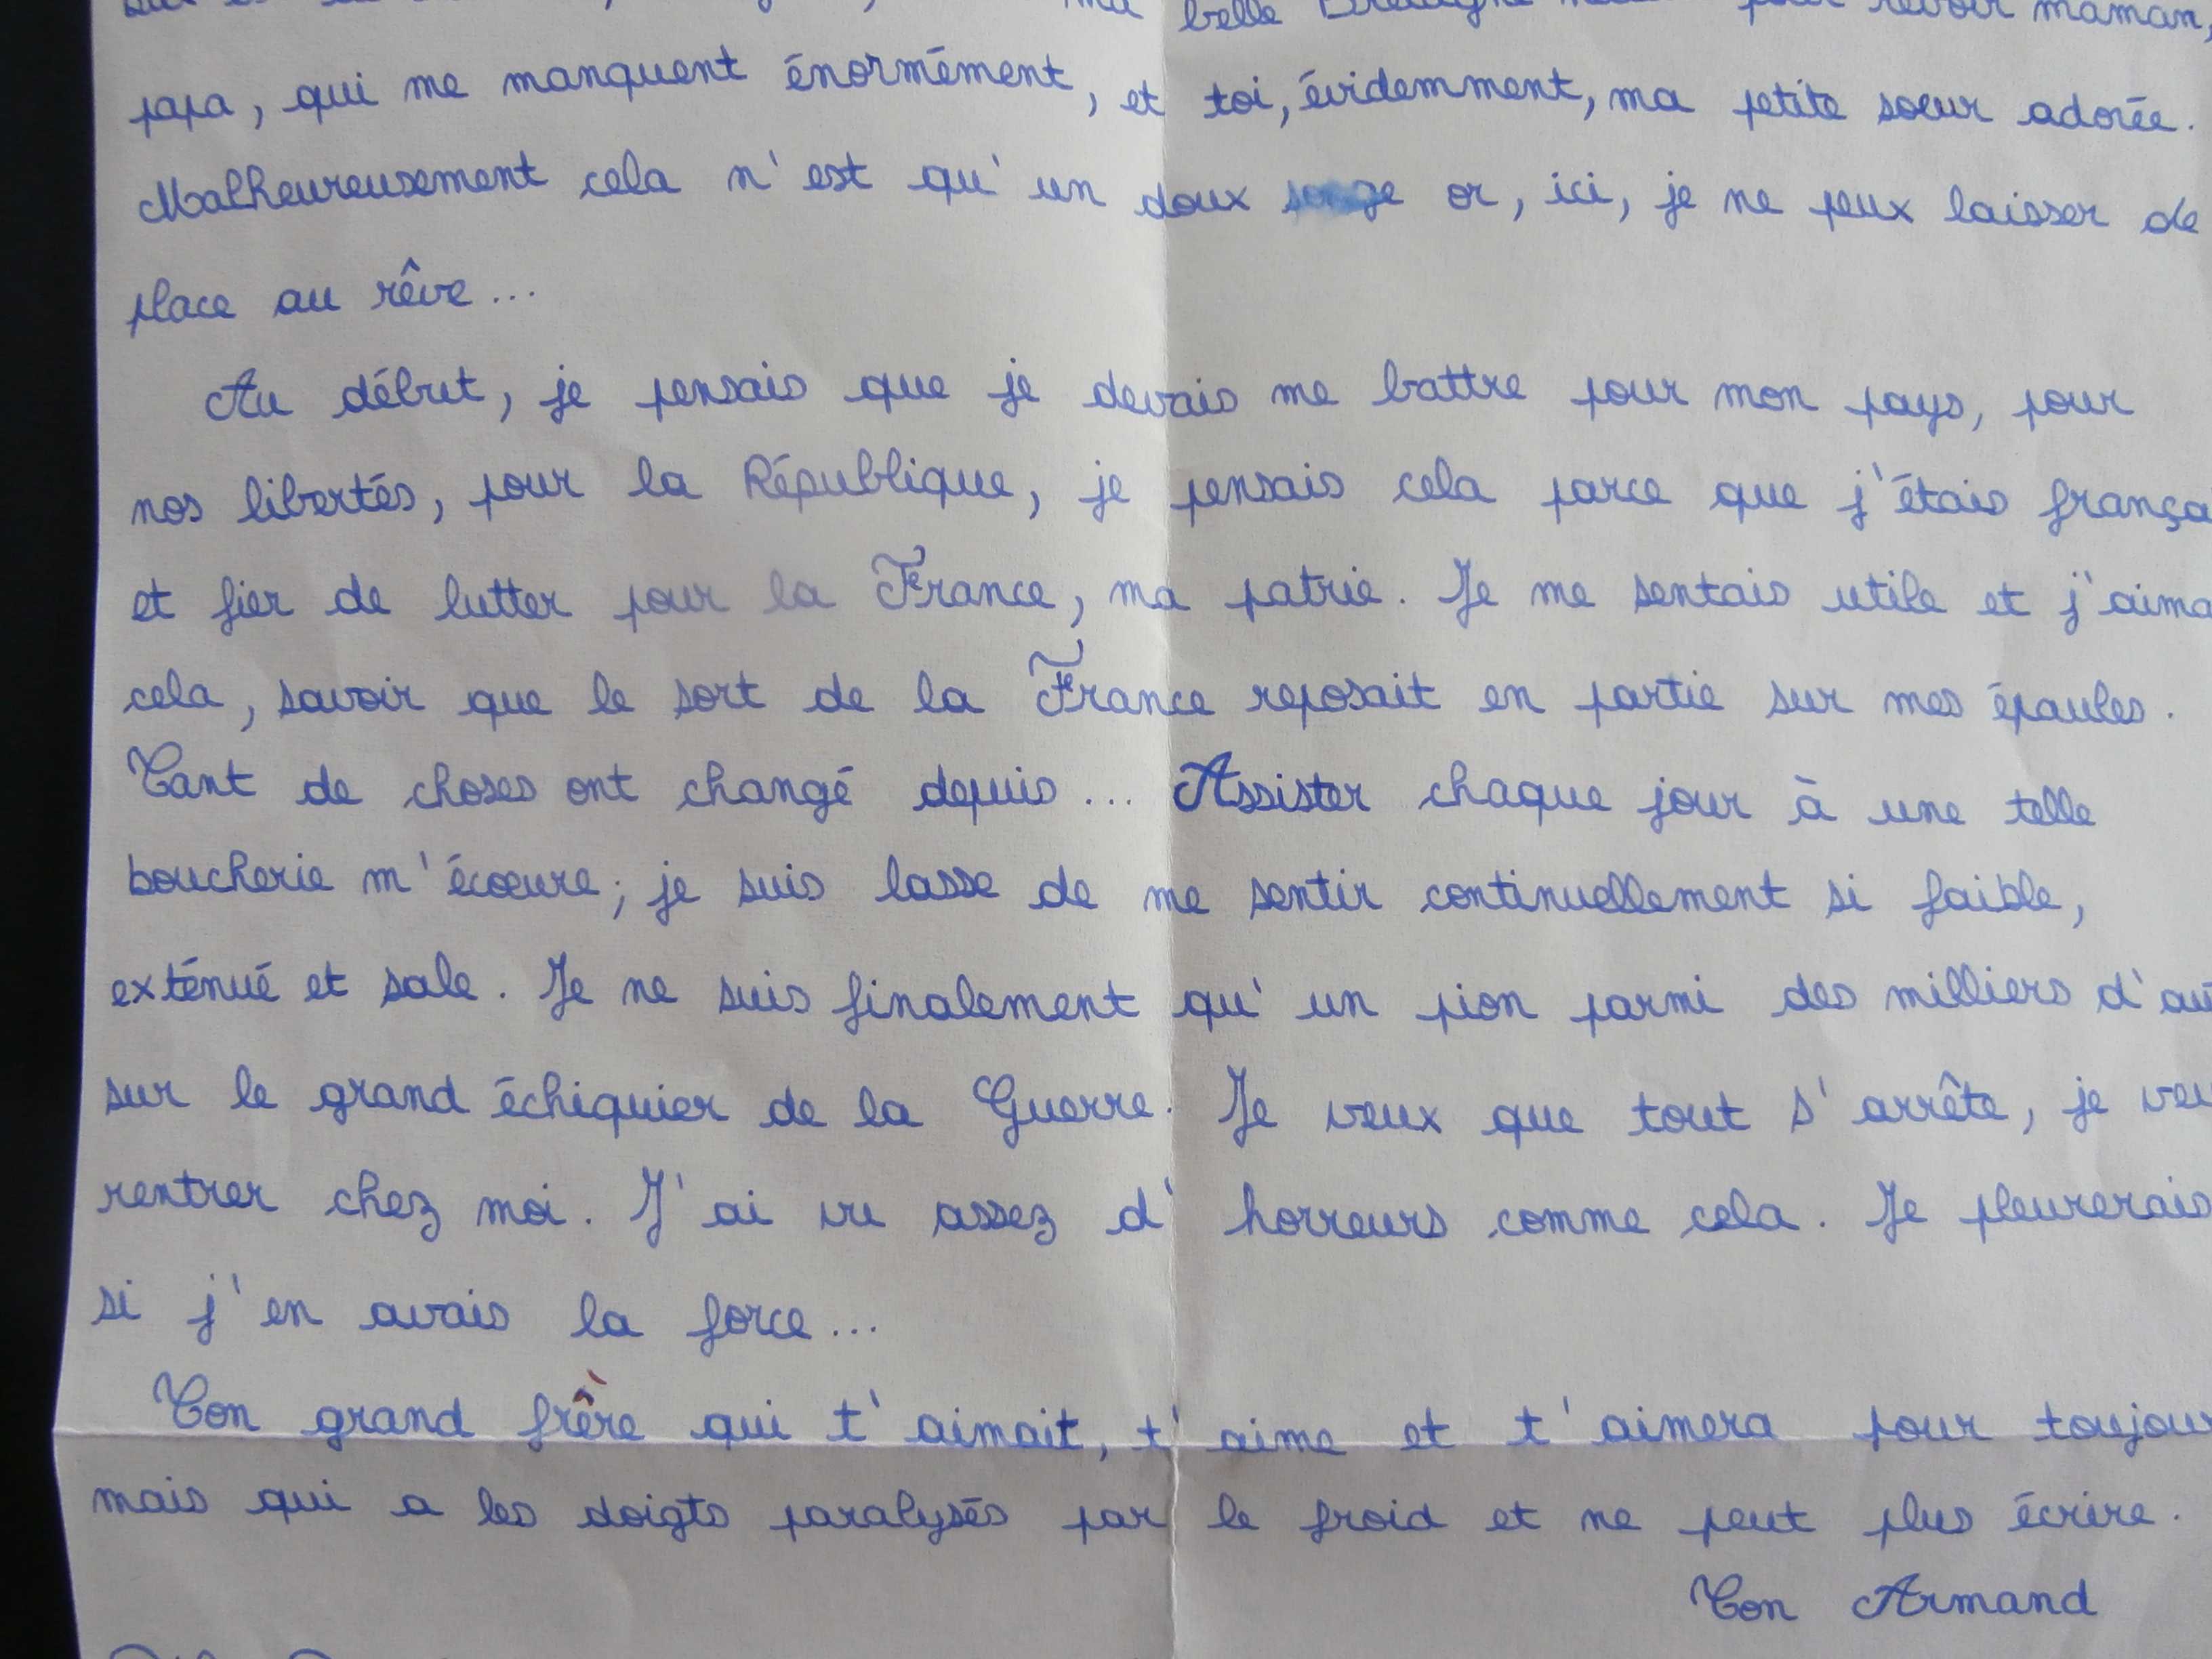 ma belle pour revoir maman,
papa, qui me manquent énormément, et toi, évidemment, ma petite soeur adorée.
Malheureusement cela n'est qu'un doux songe or, ici, je ne peux laisser de
place au rêve...
Au début, je pensais que je devais me battre pour mon pays, pour
nos libertés, pour la République, je pensais cela parce que j'étais frança
et fier de lutter pour la France, ma patrie. Je me sentais utile et j'aima
cela, savoir que le sort de la France reposait en partie sur mes épaules.
Tant de choses ont changé depuis... Assister chaque jour à une telle
boucherie m'écoeure; je suis lasse de me sentir continuellement si faible,
exténué et sale. Je ne suis finalement qu'un pion parmi des milliers d'aut
sur le grand échiquier de la Guerre. Je veux que tout s'arrête, je veu
rentrer chez moi. J'ai vu assez d'horreurs comme cela. Je pleurerais
si j'en avais la force...
Ton grand frère qui t'aimait, t'aime et t'aimera pour toujour
mais qui a les doigts paralysés par le froid et ne peut plus écrire.
Ton Armand